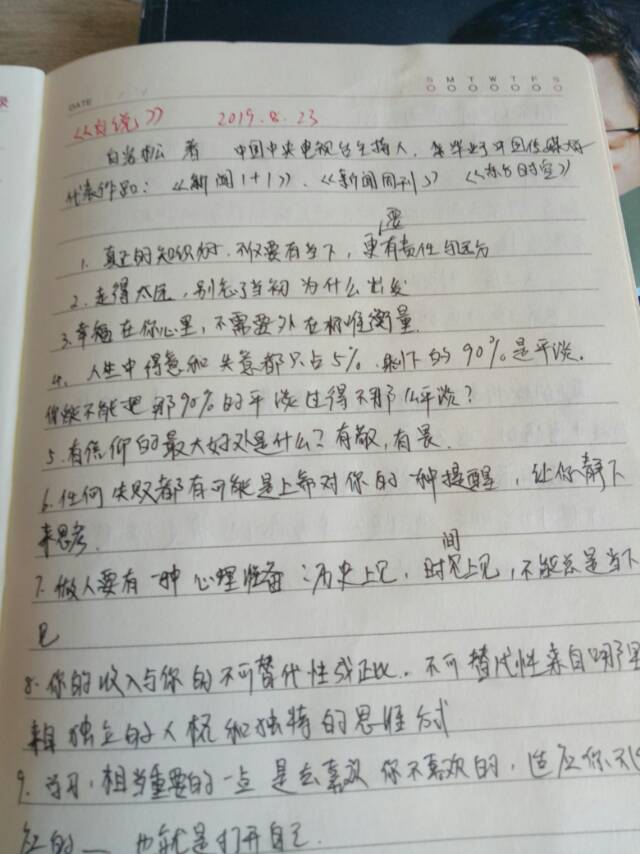 录
DATE
S M T W T F S
《白说》 2019.8.23
白岩松 著 中国中央电视台主持人, 毕业于中国传媒大学
代表作品: 《新闻1+1》、《新闻周刊》 《东方时空》
要
1. 真正的知识分子, 不仅要有当下, 更有责任与远方
2. 走得太远, 别忘了当初为什么出发
3. 幸福在你心里, 不需要外在标准衡量.
4. 人生中得意和失意都只占5%. 剩下的90%是平淡.
你能不能把那90%的平淡过得不那么平淡?
5. 有信仰的最大好处是什么? 有敬, 有畏.
6. 任何失败都有可能是上帝对你的一种提醒, 让你静下
来思考.
间
7. 做人要有一种心理准备: 历史上见, 时见上见, 不能总是当下
见
8. 你的收入与你的不可替代性成正比. 不可替代性来自哪里
来自独立的人格和独特的思维方式
9. 学习, 相当重要的一点是去喜欢你不喜欢的, 适应你不适
应的 — 也就是打开自己.